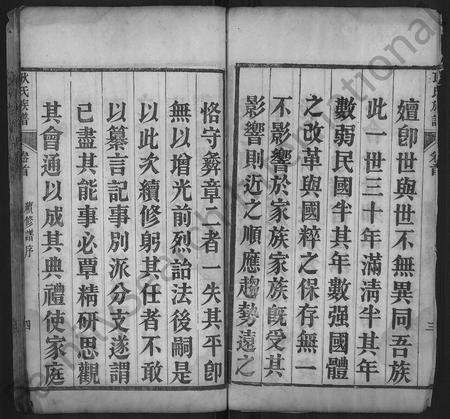 嬗卽世與世不無異同吾族
此一世三十年滿清半其年
數弱民國半其年數强國體
之改革與國粹之保存無一
不影響於家族家族旣受其
影響則近之順應趨勢遠之
恪守彝章二者一失其平卽
無以增光前烈詒法後嗣是
以此次續修躬其任者不敢
以纂言記事別派分支遂謂
己盡其能事必覃精硏思觀
其會通以成其典禮使家庭
氏族譜
卷首
續修譜序
四